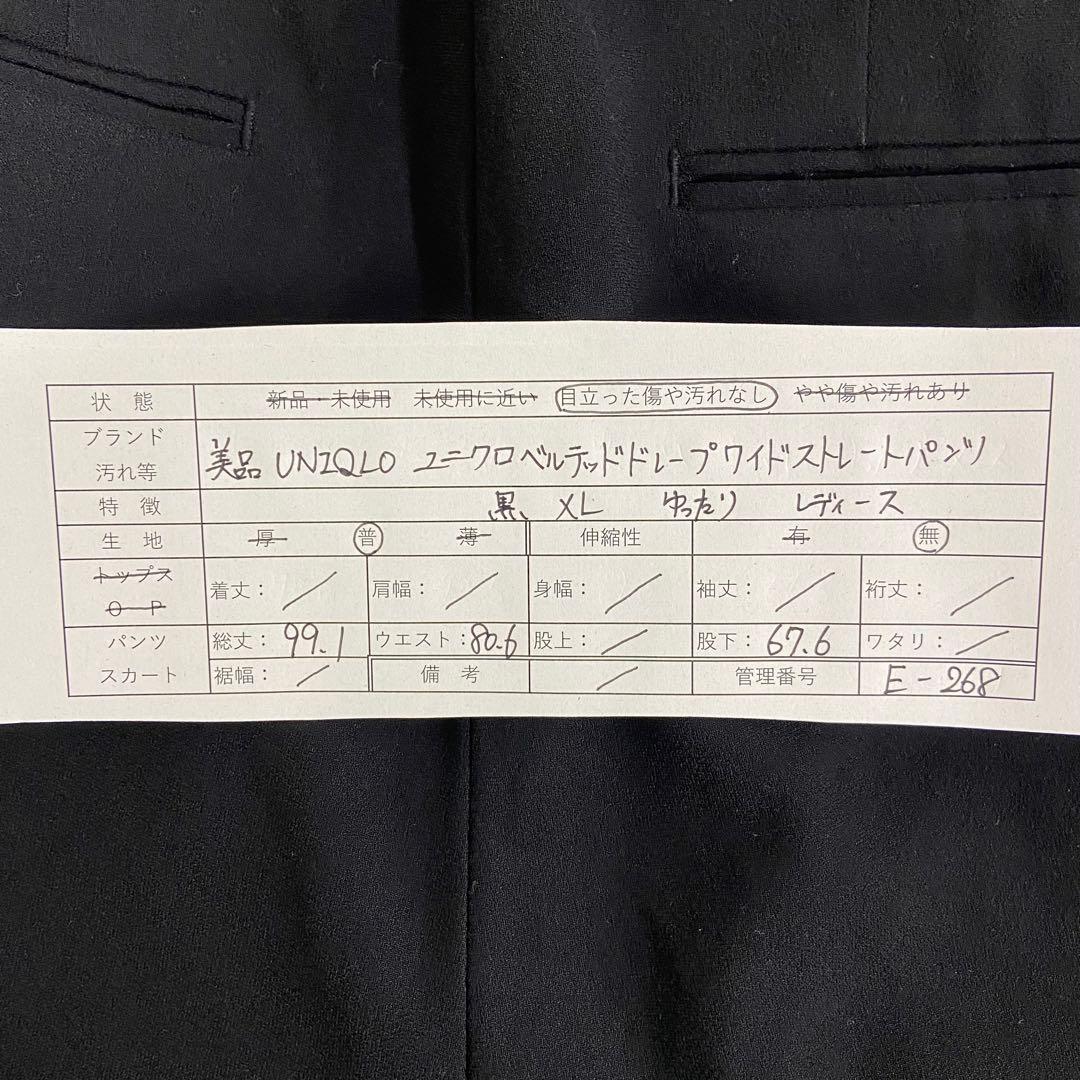 状態 新品・未使用 未使用に近い 目立った傷や汚れなし やや傷や汚れあり
ブランド
汚れ等 美品 UNIQLO ユニクロ ベルテッドドレープワイドストレートパンツ
特徴 黒、 XL ゆったり レディース
生地 厚 普 薄 伸縮性 有 無
トップス
O P 着丈: / 肩幅: / 身幅: / 袖丈: / 裄丈: /
パンツ 総丈: 99.1 ウエスト: 80.6 股上: / 股下: 67.6 ワタリ: /
スカート 裾幅: / 備考 / 管理番号 E-268